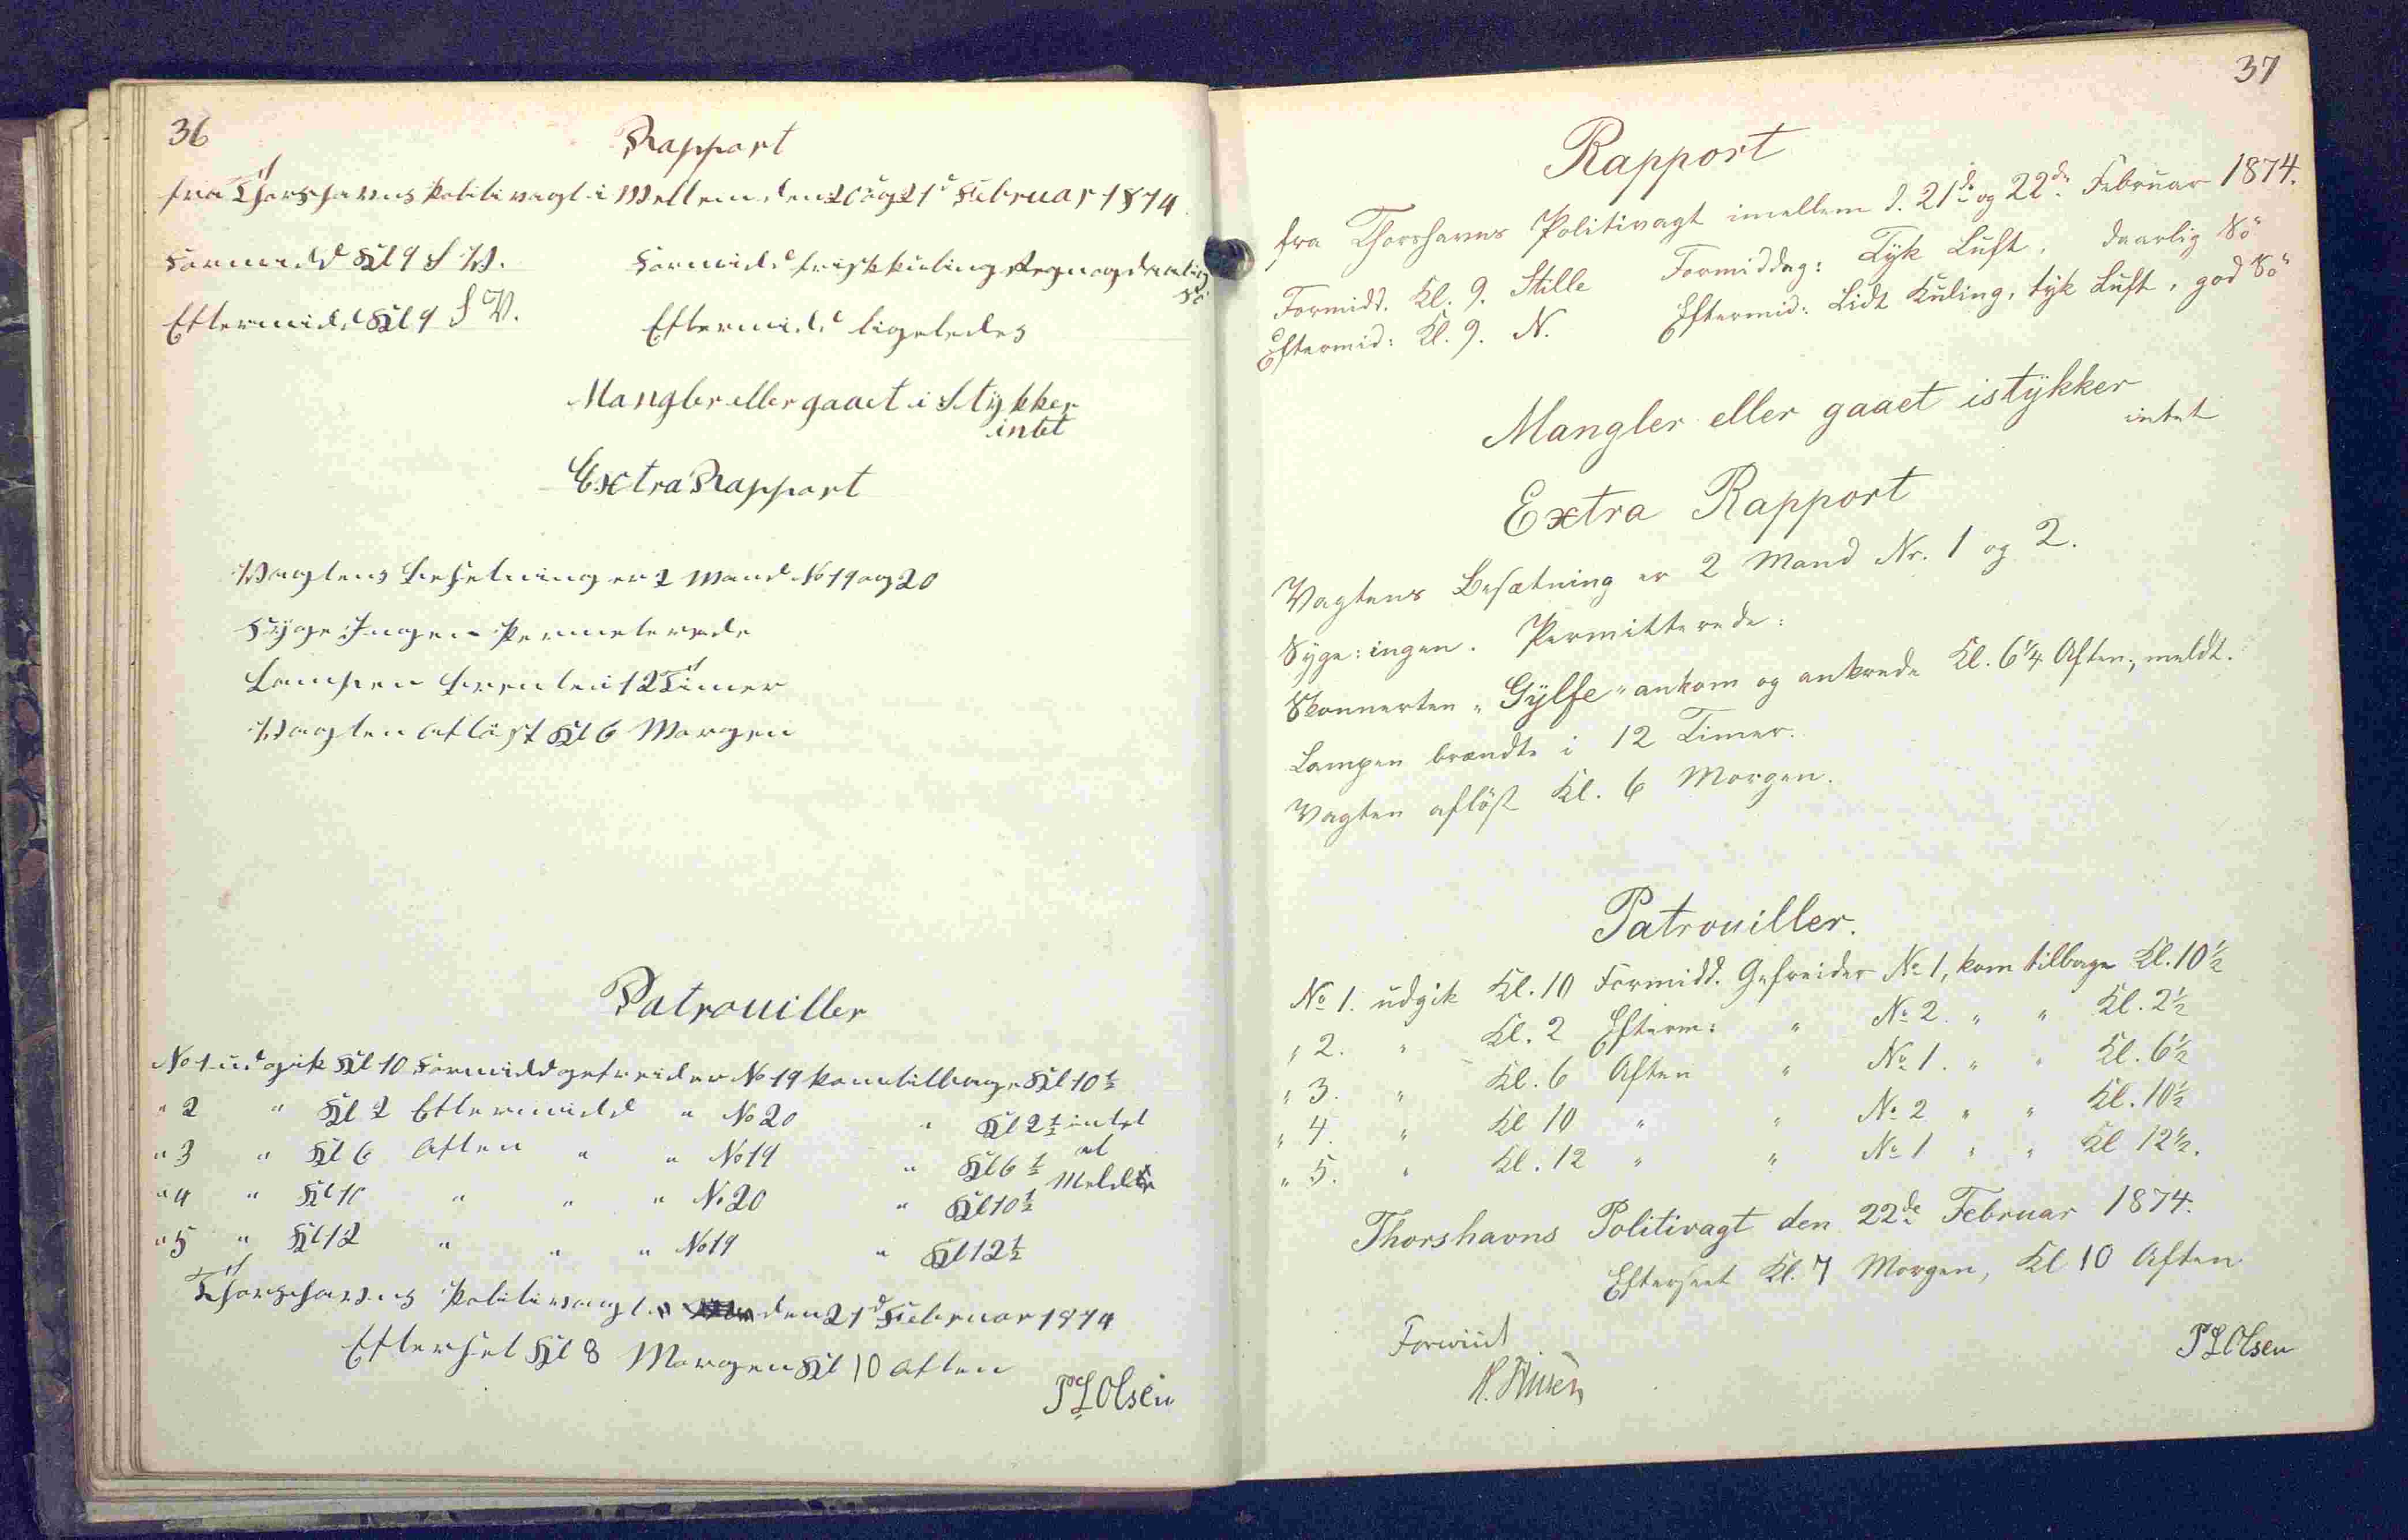 36
Rapport
fra Thorshavns Politivagt i Mellem den 20 og 21d Februar 1874
Formidd Kl 9 S V.
Formidd frisk kuling Regn og daarlig
Sö
Eftermidd Kl 9 S V.
Eftermidd ligeledes
Mangler eller gaaet i Stykker
intet
Extra Rapport
Vagtens besetning er 2 Mand No 19 og 20
Syge Ingen Permeterede
Lampen brente i 12 Timer
Vagten aflöst Kl 6 Morgen
Patrouiller
No 1 udgik Kl 10 Formidd gefreider No 19 kom tilbage Kl 10 ½
" 2 " Kl 2 Eftermidd " No 20 " Kl 2 ½ intet
" 3 " Kl 6 Aften " " No 19 " Kl 6 ½ at
" 4 " Kl 10 " " " No 20 " Kl 10 ½ Melde
" 5 " Kl 12 " " " No 19 " Kl 12 ½
Thorshavns Politivagt den 21d Februar 1874
Efterset Kl 8 Morgen Kl 10 Aften
P L Olsen
37
Rapport
fra Thorshavns Politivagt imellem d. 21de og 22de Februar 1874.
Formidd. Kl. 9. Stille Formiddag: Tyk Luft, daarlig Sö
Eftermid: Kl. 9. N. Eftermid: Lidt Kuling, tyk Luft, god Sö
Mangler eller gaaet istykker
intet
Extra Rapport
Vagtens Besætning er 2 Mand Nr. 1 og 2.
Syge: ingen. Permitterede:
Skonnerten "Gylfe" ankom og ankrede Kl. 6 ¼ Aften, meldt.
Lampen brændte i 12 Timer.
Vagten aflöst Kl. 6 Morgen.
Patrouiller.
No 1. udgik Kl. 10 Formidd. Gefreider No 1, kom tilbage Kl. 10 ½
" 2. " Kl. 2 Efterm: " No 2. " " Kl. 2 ½
" 3. " Kl. 6 Aften " No 1. " " Kl. 6 ½
" 4. " Kl 10 " " No 2 " " Kl. 10 ½
" 5. " Kl. 12 " " No 1 " " Kl 12 ½.
Thorshavns Politivagt den 22de Februar 1874.
Efterseet Kl. 7 Morgen, Kl 10 Aften
P L Olsen